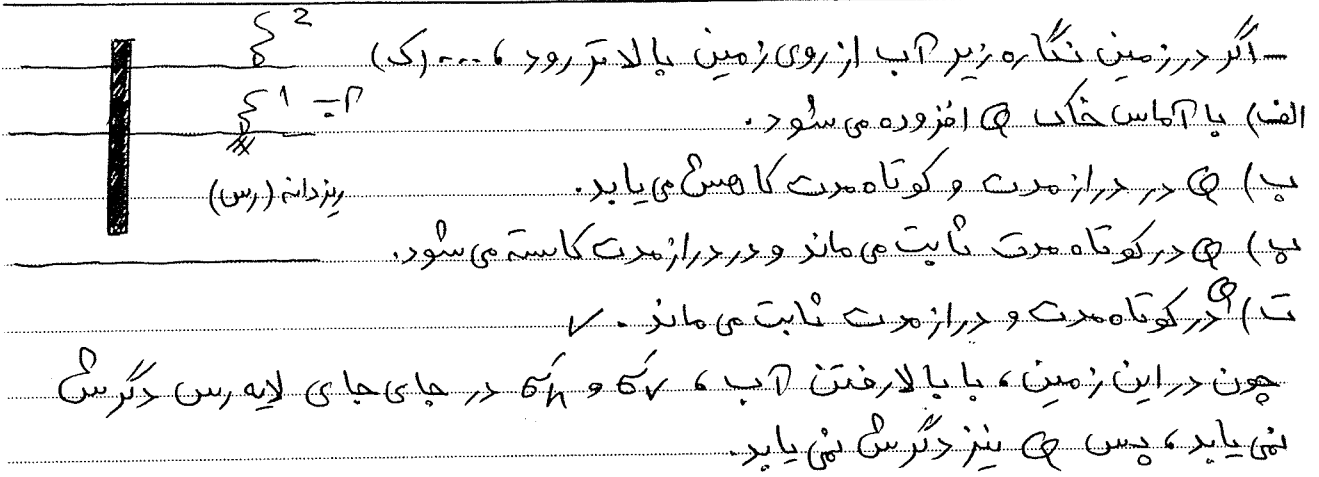 - اگر در زمین نگاره زیر آب از روی زمین بالاتر رود، ... (ک)
الف) با آماس خاک Q افزوده می‌شود.
ب) Q در درازمدت و کوتاه مدت کاهش می‌یابد.
پ) Q در کوتاه مدت ثابت می‌ماند و در درازمدت کاسته می‌شود.
ت) Q در کوتاه مدت و درازمدت ثابت می‌ماند. ✓
چون در این زمین، با بالا رفتن آب، σ́v و σ́h در جای جای لایه رس دگرش
نمی‌یابد، پس Q نیز دگرش نمی‌یابد.
2
1 آب
ریزدانه (رس)